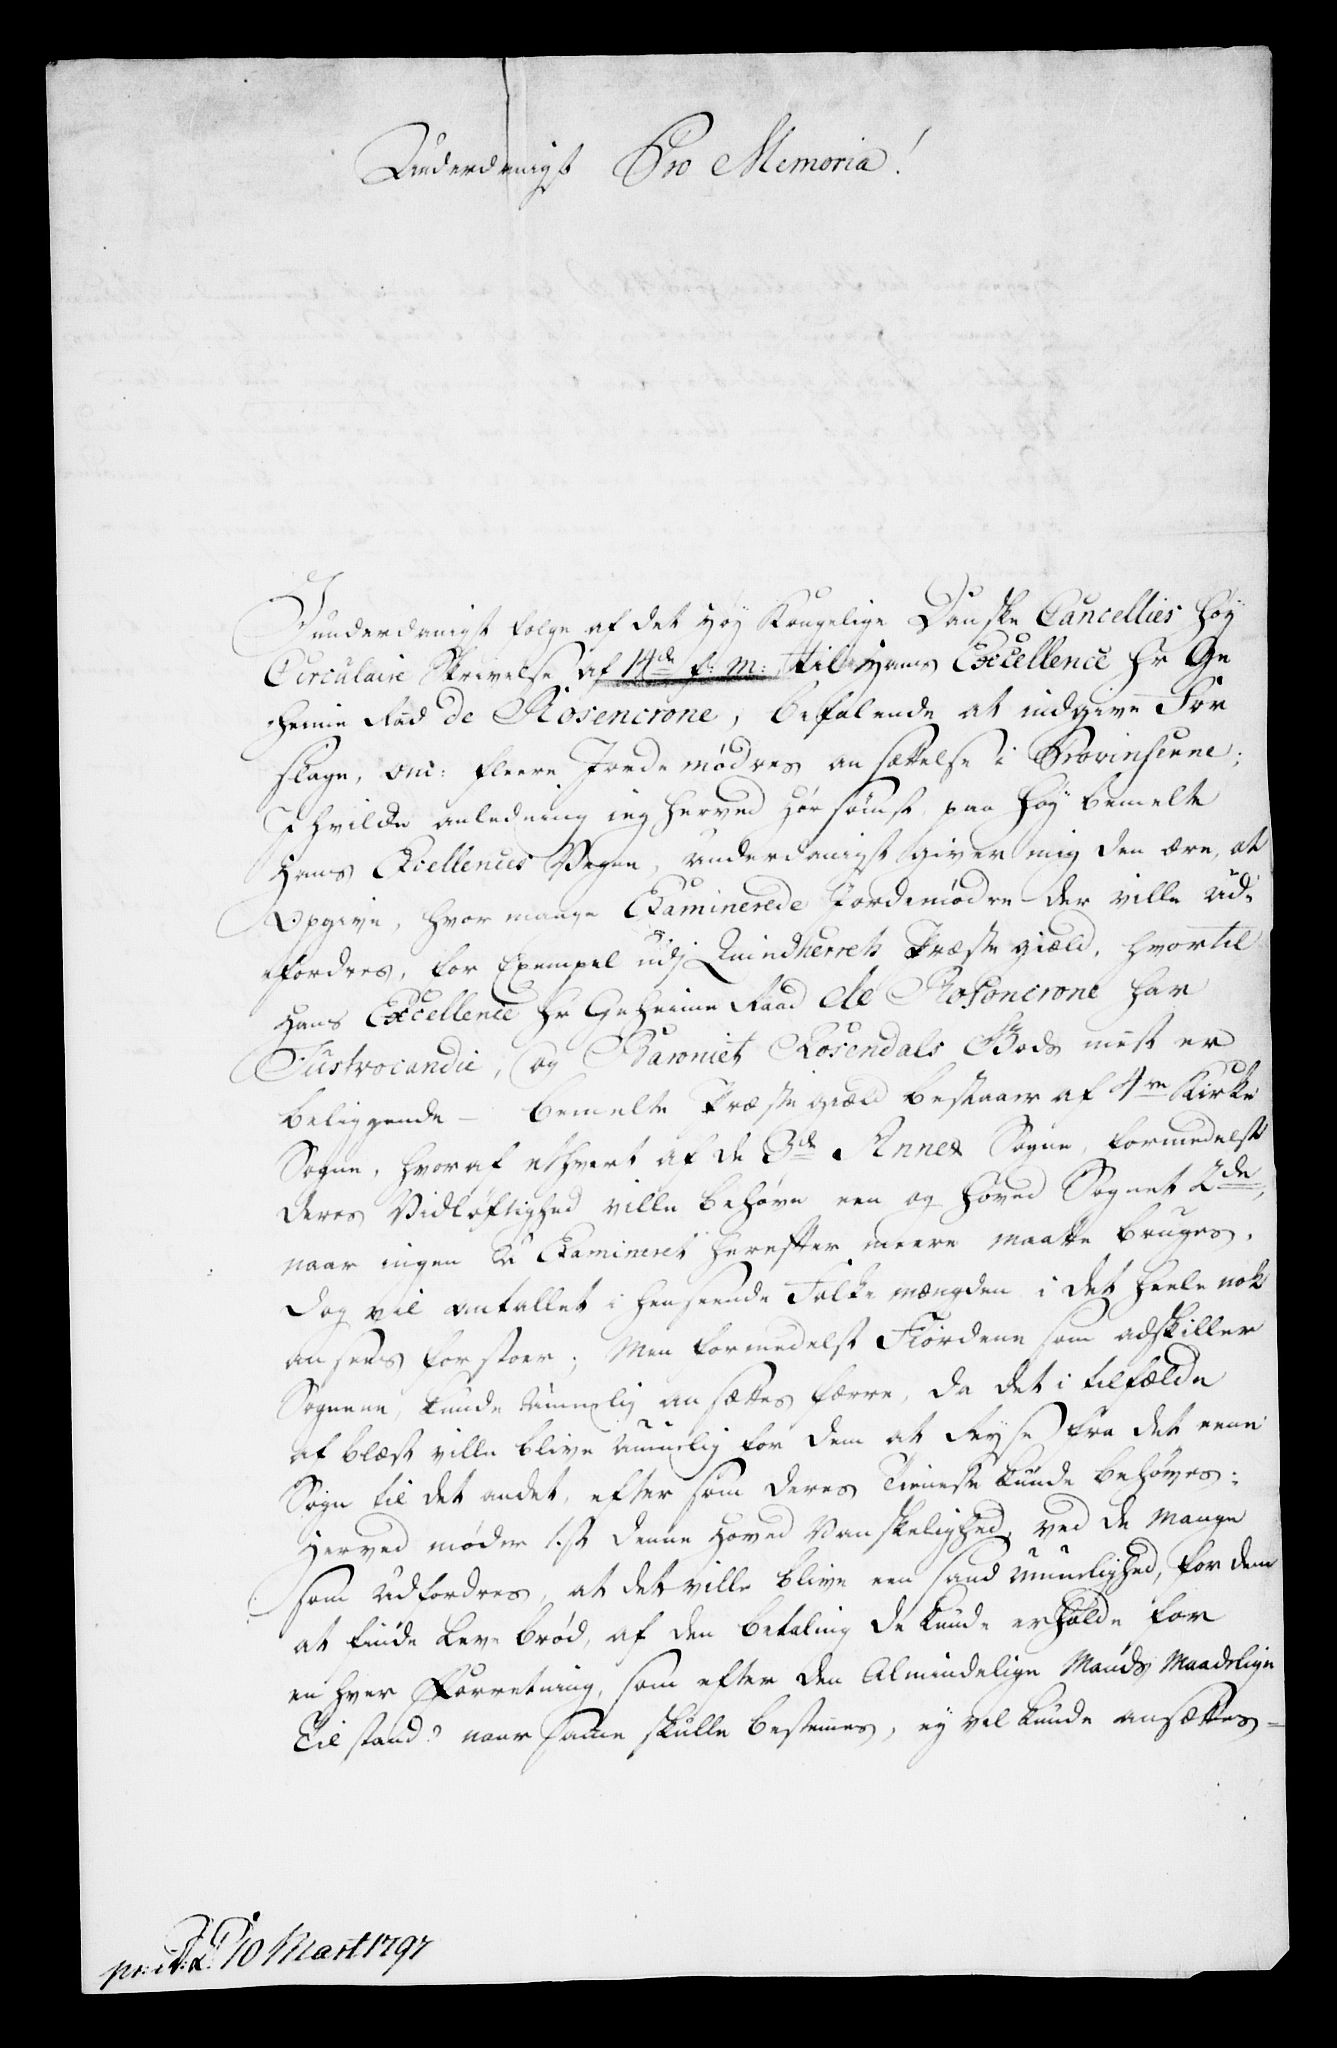 Underdanigst Pro Memoria!
I underdanigst følge af det Høy Kongelige Danske Cancellies høy
Circulaire Skrivelse af 14de f: m: til Hans Excellence Hr Ge
heime Raad de Rosencrone, befalende at indgive For
slage, om fleere Jordemødres ansættelse i Provinserne;
I hvilken anledning ieg herved hørsomst paa høy bemelte
Hans Excellences Vegne, underdanigst giver mig den ære, at
Opgive, hvor mange Examinerede Jordemødre der ville ud-
fordres, for Exempel udj Quindherrets Præstegield, hvortil
Hans Excellence Hr Geheime Raad de Rosencrone har
Justvocandie, og Baroniet Rosendals Gods mest er
beliggende – bemelte Præstegield bestaaer af 4re Kirke
Sogne, hvoraf ethvert af de 3de Annex Sogne, formedelst
deres Vidløftighed ville behøve een og Hoved Sognet 2de,
naar ingen u Examineret herefter meere maatte bruges,
dog vil antallet i henseende Folke mængden i det heele nok
ansees for stoer; Men formedelst Fiordene som adskiller
Sognene, kunde umuelig ansættes færre, da det i tilfælde
af blæst ville blive umuelig for dem at Reyse fra det eene
Sogn til det andet, efter som deres Tieneste kunde behøves:
Herved møder 1st denne Hoved Vanskelighed, ved de mange
som udfordres, at det ville blive een sand umuelighed, for dem
at finde leve brød, af den betaling de kunde erholde for
en hver Forretning, som efter den Almindelige Mands Maadelige
Tilstand naar samme skulle bestemmes, ey vel kunde ansættes –
10 Mart 1797